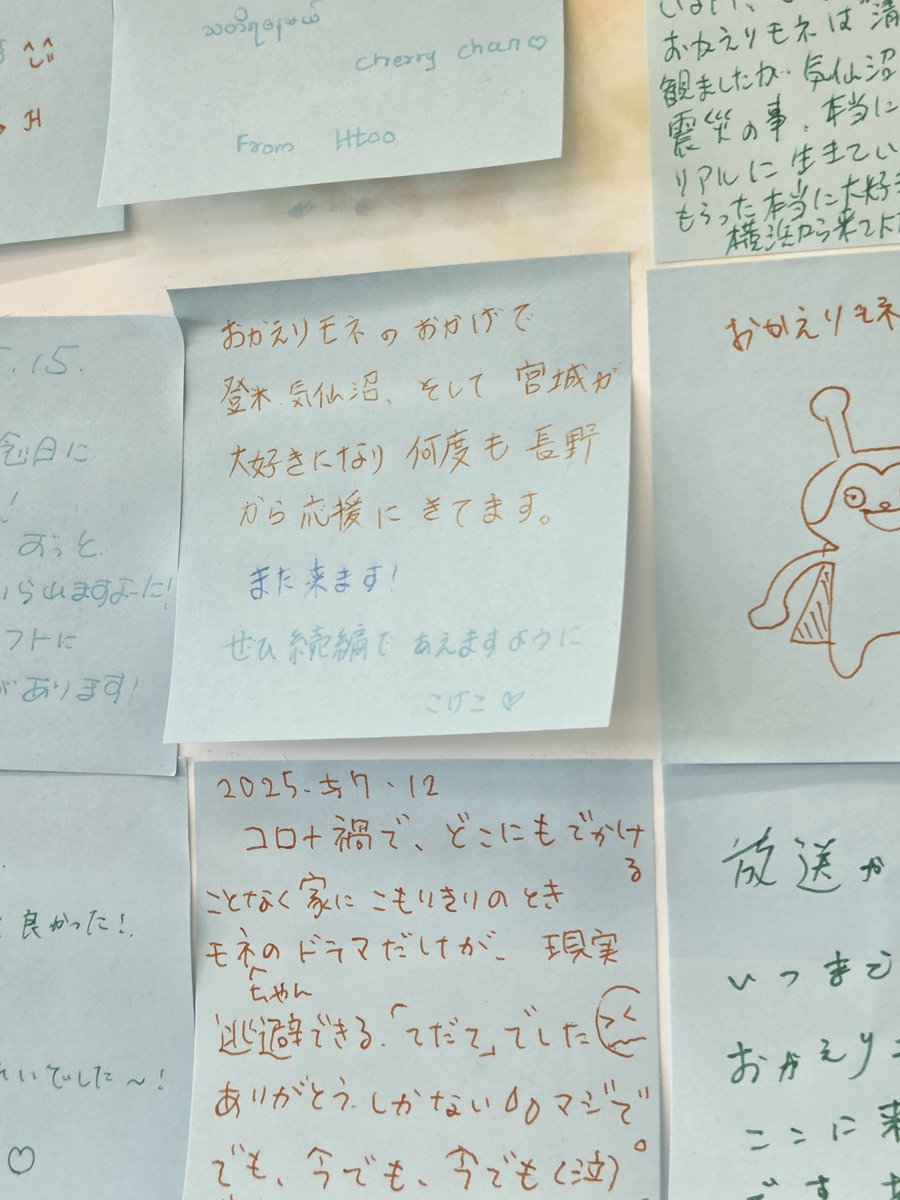 H
cherry chan♡
From Htoo
おかえりモネは「清
観ましたが、気仙沼
震災の事、本当に
リアルに生きてい
もらった本当に大好き
横浜から来て
.15.
念日に
!
ずっと
フトに
があります!
おかえりモネのおかげで
登米、気仙沼、そして宮城が
大好きになり何度も長野
から応援にきてます。
また来ます!
ぜひ続編であえますように
こけこ♡
おかえりモネ
良かった!
れいでした〜!
♡
2025.
・12
コロナ禍で、どこにもでかける
ことなく家にこもりきりのとき
モネちゃんのドラマだけが、現実
逃避できる「てだて」でした
ありがとう.しかない マジで
でも、今でも、今でも(泣)
放送か
いつまで
おかえり
ここに来